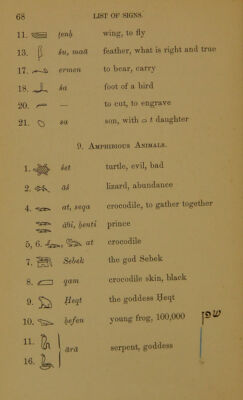 68 LIST OF SIGNS.
11. ṭenḥ wing, to fly
13. šu, maā feather, what is right and true
17. ermen to bear, carry
18. ša foot of a bird
20. — to cut, to engrave
21. sa son, with t daughter
9. Amphibious Animals.
1. šet turtle, evil, bad
2. āš lizard, abundance
4. at, seqa crocodile, to gather together
ȧθi, ḥenti prince
5, 6. at crocodile
7. Sebek the god Sebek
8. qam crocodile skin, black
9. Ḥeqt the goddess Ḥeqt
10. ḥefen young frog, 100,000
11.
16. ārā serpent, goddess